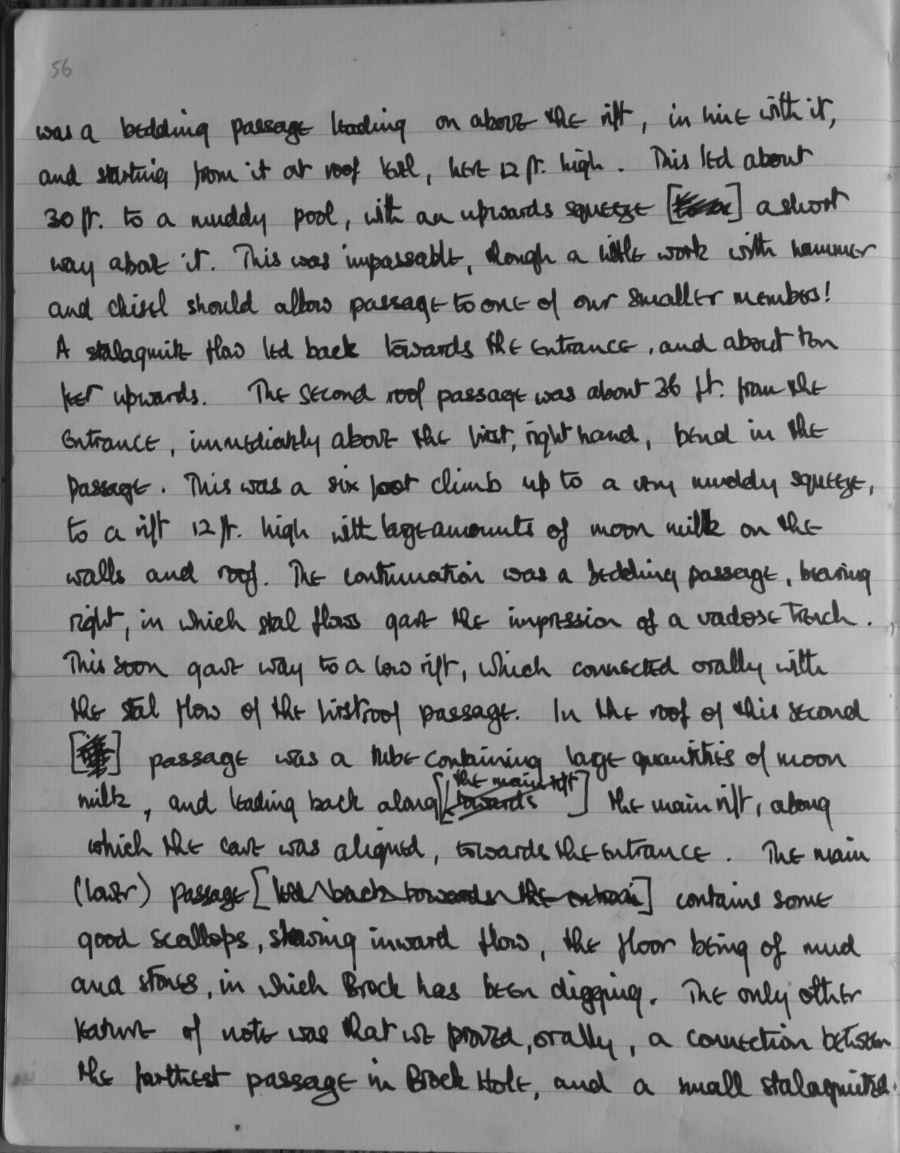 56
was a bedding passage leading on above the rift, in line with it,
and starting from it at roof level, here 12 ft. high. This led about
30 ft. to a muddy pool, with an upwards squeeze [] a short
way above it. This was impassable, though a little work with hammer
and chisel should allow passage to one of our smaller members!
A stalagmite flow led back towards the entrance, and about ten
feet upwards. The second roof passage was about 36 ft. from the
entrance, immediately above the first, right hand, bend in the
passage. This was a six foot climb up to a very muddy squeeze,
to a rift 12 ft. high with large amounts of moon milk on the
walls and roof. The continuation was a bedding passage, bearing
right, in which stal flows gave the impression of a vadose trench.
This soon gave way to a low rift, which connected orally with
the stal flow of the first roof passage. In the roof of this second
[] passage was a tube containing large quantities of moon
milk, and leading back along [towards the main rift] the main rift, along
which the cave was aligned, towards the entrance. The main
(lower) passage [led back towards the entrance] contains some
good scallops, showing inward flow, the floor being of mud
and stones, in which Brock has been digging. The only other
feature of note was that we proved, orally, a connection between
the farthest passage in Brock Hole, and a small stalagmited